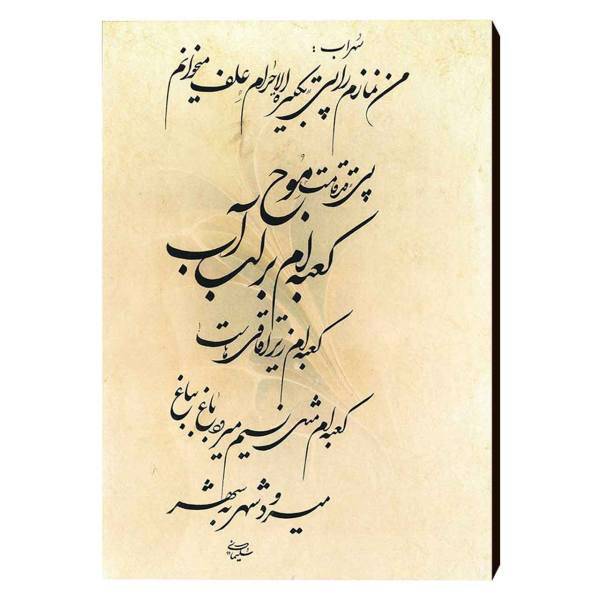 سهراب :
من نمازم را پی تکبیرة الاحرام علف میخوانم
پی قد قامت موج
کعبه ام بر لب آب
کعبه ام زیر اقاقی هاست
کعبه ام مثل نسیم میرود باغ بباغ
میرود شهر به شهر
سلیمانی